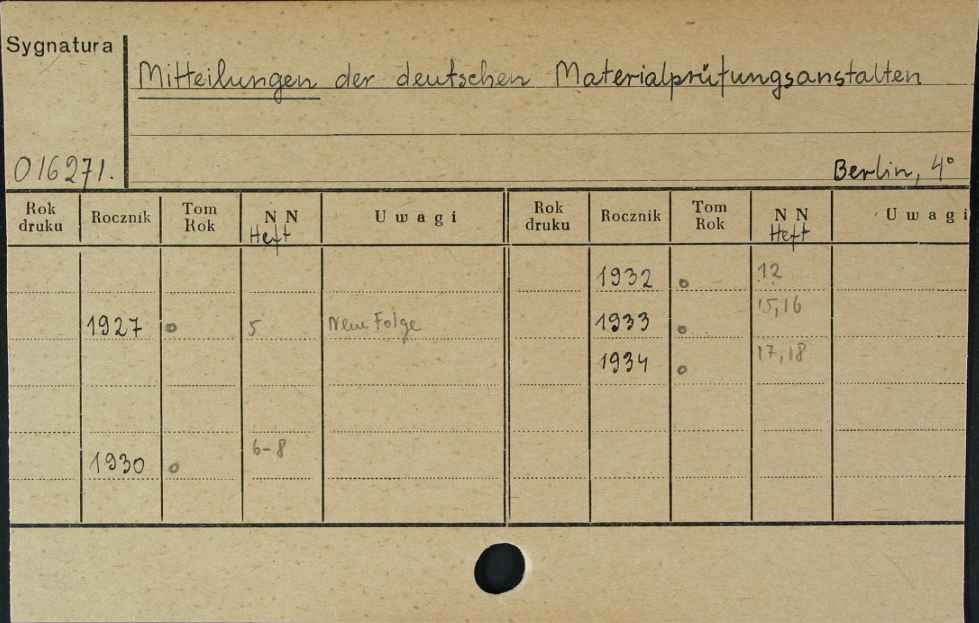 Sygnatura
Mitteilungen der deutschen Materialprüfungsanstalten
016271.
Berlin, 4°
Rok druku Rocznik Tom Rok N N Heft Uwagi Rok druku Rocznik Tom Rok N N Heft Uwagi
1932 o 12
1927 o 5 Neue Folge 1933 o 15,16
1934 o 17,18
1930 o 6-8